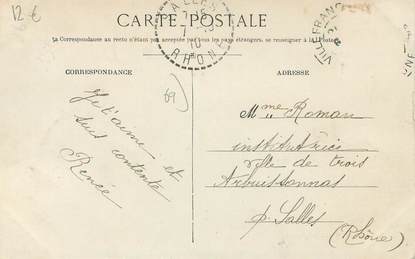 12 €
CARTE POSTALE
La Correspondance au recto n'étant pas acceptée par tous les pays étrangers, se renseigner à la Poste
CORRESPONDANCE
ADRESSE
SALLES
10
RHONE
VILLEFRANC
69
Je t'aime et
suis contente
Renée
Mme Roman
institutrice
ville de trois
Arbuissonnas
p. Salles
(Rhône)